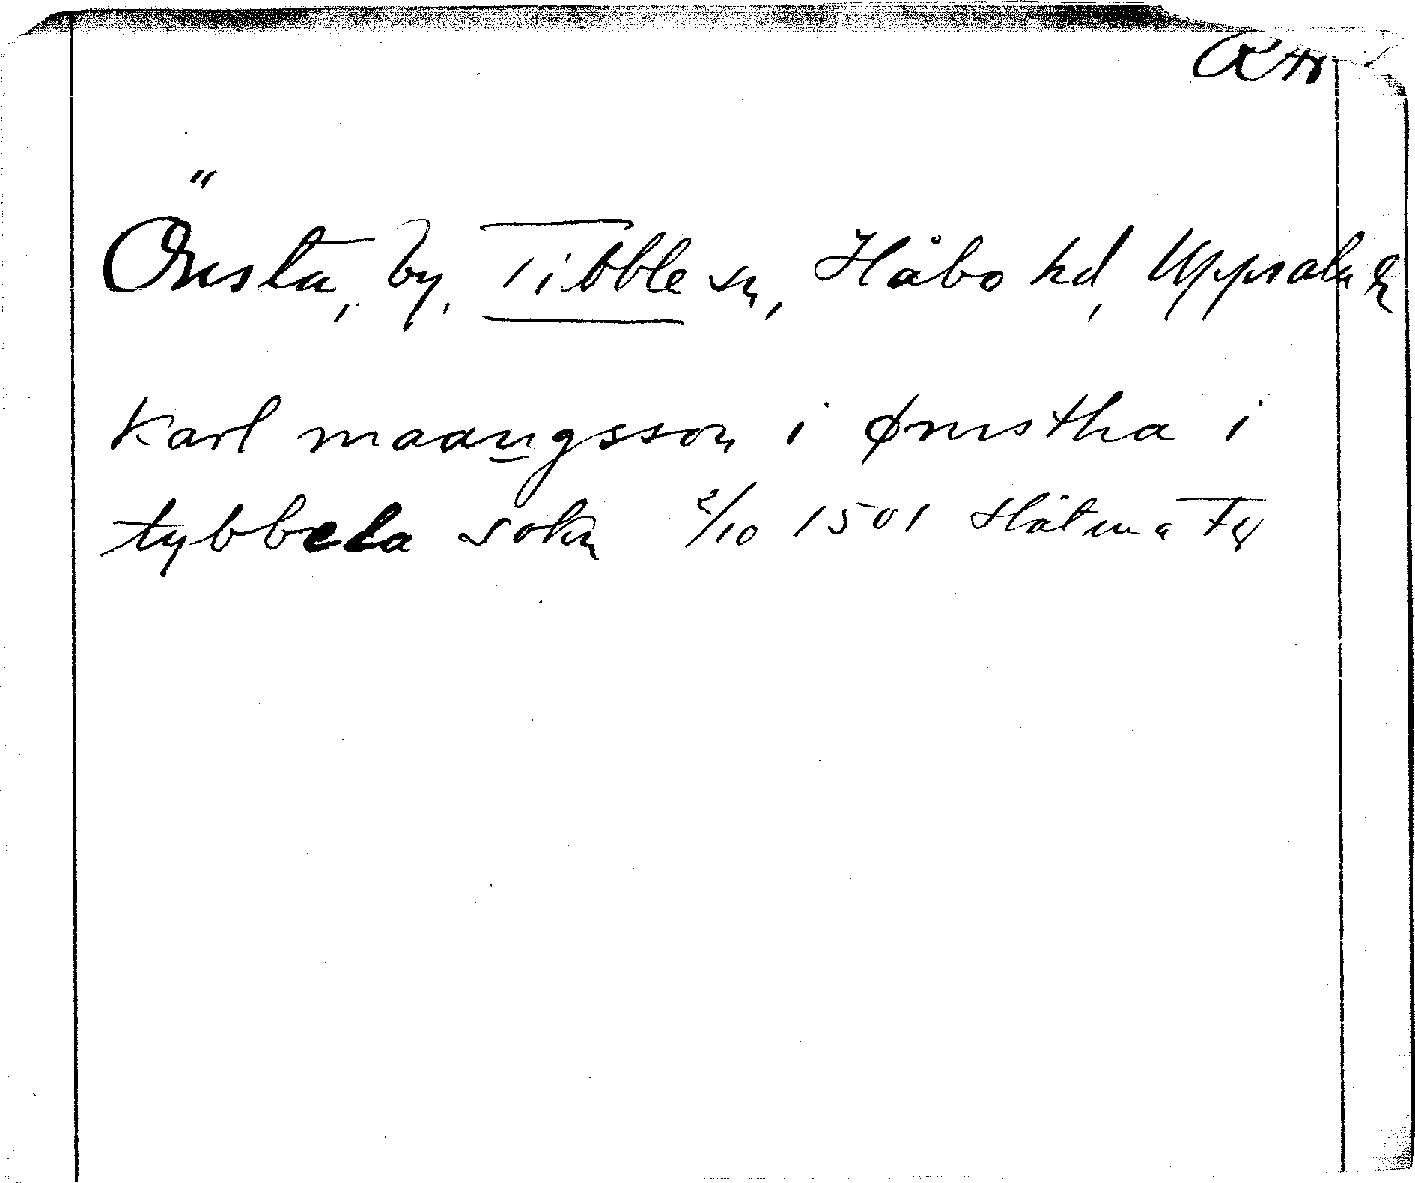 Önsta, by, Tibble sn, Håbo hd, Uppsala l
Karl maangsson i ørnstha i
tybbela sokn 2/10 1501 Håtuna